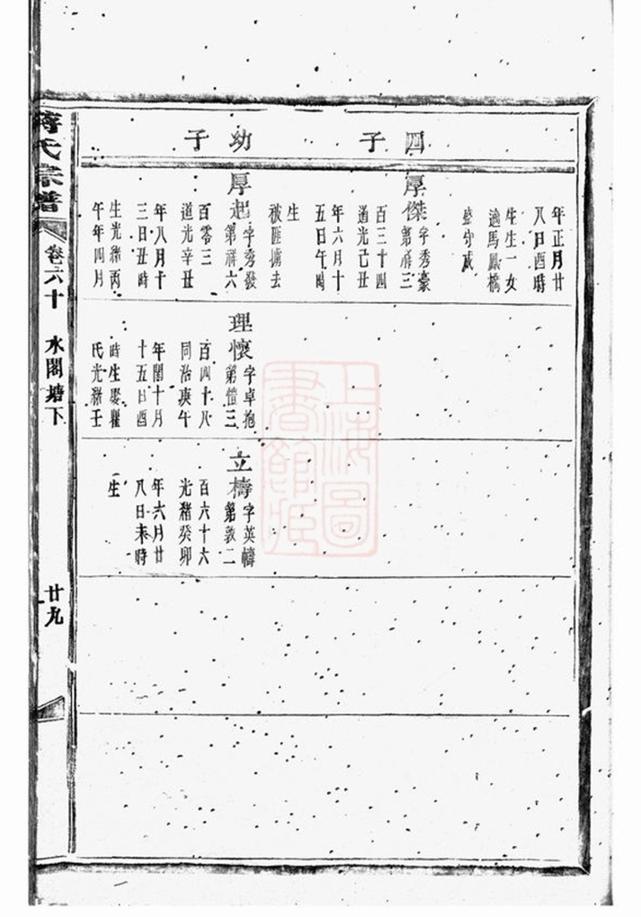 四子
幼子
年正月廿
八日酉時
生生一女
適馬鳳橋
監守咸
厚傑
字秀豪
第祥三
百三十四
道光己丑
年六月十
五日午時
生
被匪擄去
厚起
字秀發
第祥六
百零三
道光辛丑
年八月十
三日丑時
生光緒丙
午年四月
理懷
字卓抱
第愷三
百四十八
同治庚午
年閏十月
十五日酉
時生娶羅
氏光緒壬
立檮
字英幬
第敦二
百六十六
光緒癸卯
年六月廿
八日未時
生
蔣氏宗譜
卷六十
水閣塘下
廿九
上海圖
書館藏